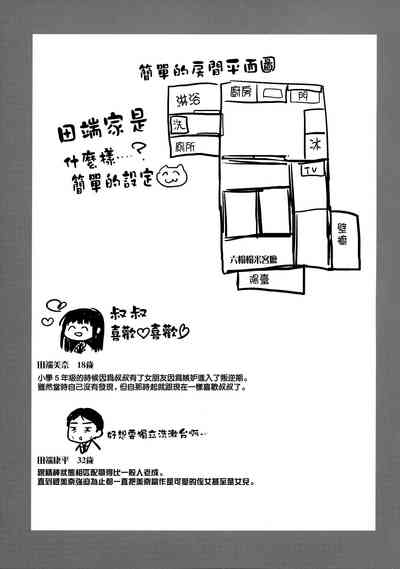 簡單的房間平面圖
田端家是
什麼樣……？
簡單的設定
淋浴
廚房
門
洗
廁所
冰
TV
壁櫥
六榻榻米客廳
陽臺
叔叔
喜歡♡喜歡♡
田端美奈 18歲
小學5年級的時候因為叔叔有了女朋友因為嫉妒進入了叛逆期。
雖然當時自己沒有發現，但自那時起就跟現在一樣喜歡叔叔了。
好想要獨立洗漱台啊…
田端康平 32歲
跟精神狀態相匹配顯得比一般人老成。
直到被美奈強迫為止都一直把美奈當作是可愛的侄女甚至是女兒。